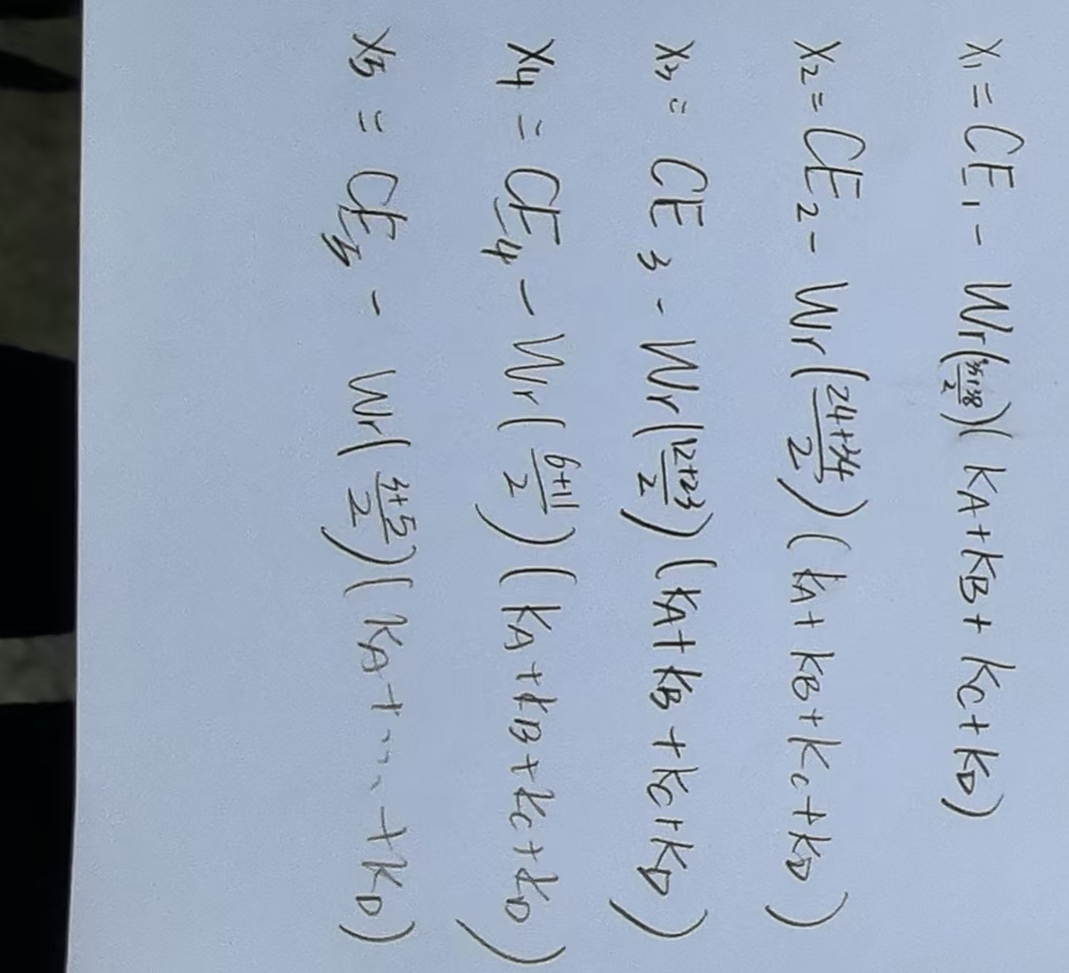 X₁ = CE₁ - Wr(\frac{35+38}{2})(KA+KB+KC+KD)
X₂ = CE₂ - Wr(\frac{24+34}{2})(KA+KB+KC+KD)
X₃ = CE₃ - Wr(\frac{12+23}{2})(KA+KB+KC+KD)
X₄ = CE₄ - Wr(\frac{6+11}{2})(KA+KB+KC+KD)
X₅ = CE₅ - Wr(\frac{3+5}{2})(KA+...+KD)